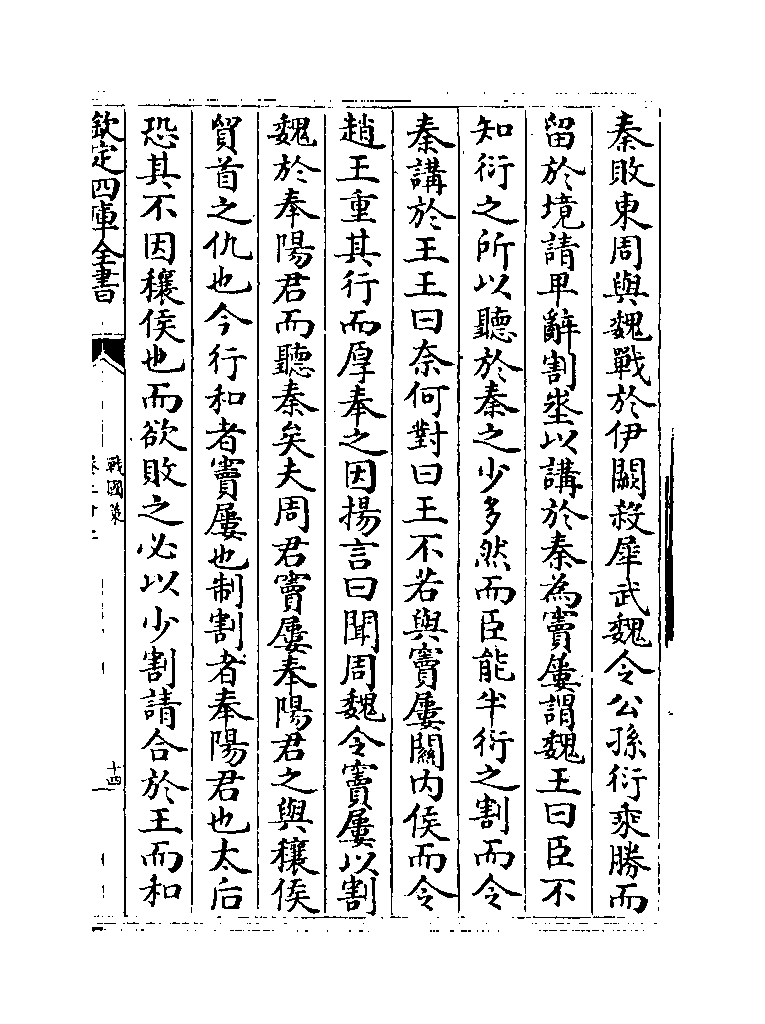 秦敗東周與魏戰於伊闕殺犀武魏令公孫衍乘勝而
留於境請卑辭割㘴以講於秦為竇屢謂魏王曰臣不
知衍之所以聽於秦之少多然而臣能半衍之割而令
秦講於王王曰奈何對曰王不若與竇屢關内侯而令
趙王重其行而厚奉之因揚言曰聞周魏令竇屢以割
魏於奉陽君而聽秦矣夫周君竇屢奉陽君之與穰侯
貿首之仇也今行和者竇屢也制割者奉陽君也太后
恐其不因穰侯也而欲敗之必以少割請合於王而和
欽定四庫全書
戰國策
十四